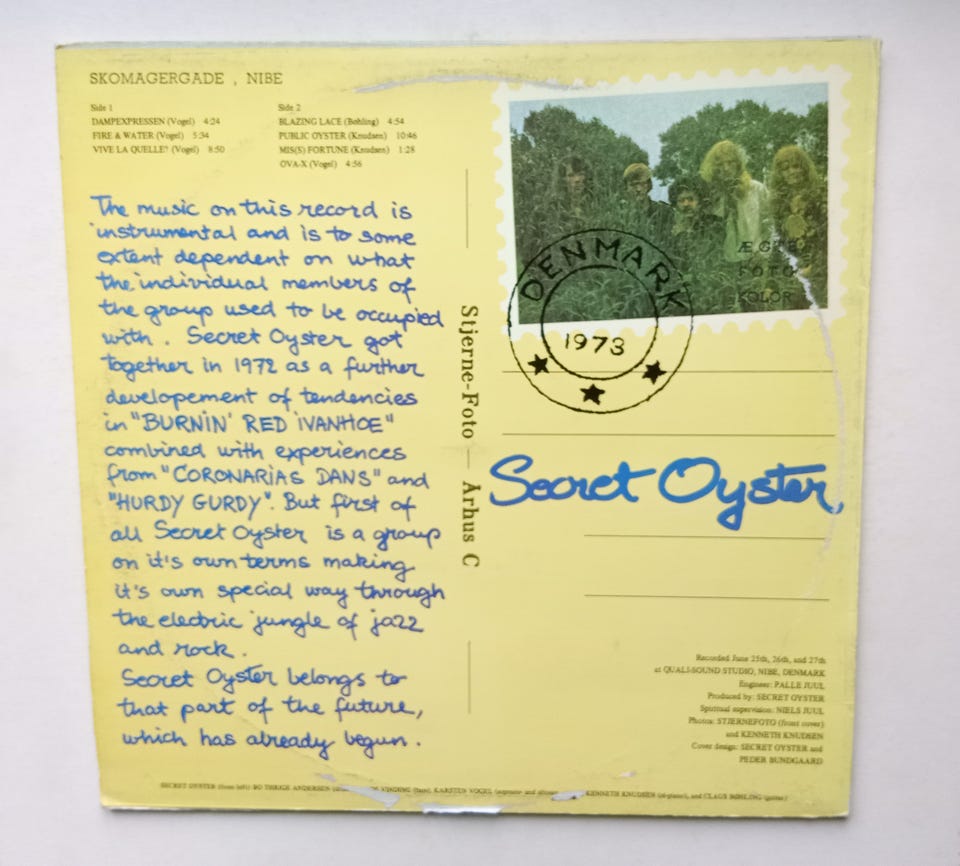 SKOMAGERGADE , NIBE
Side 1
DAMPEXPRESSEN (Vogel) 4:24
FIRE & WATER (Vogel) 5:34
VIVE LA QUELLE? (Vogel) 8:50
Side 2
BLAZING LACE (Bøhling) 4:54
PUBLIC OYSTER (Knudsen) 10:46
MIS(S) FORTUNE (Knudsen) 1:28
OVA-X (Vogel) 4:56
The music on this record is
instrumental and is to some
extent dependent on what
the individual members of
the group used to be occupied
with. Secret Oyster got
together in 1972 as a further
developement of tendencies
in "BURNIN' RED IVANHOE"
combined with experiences
from "CORONARIAS DANS" and
"HURDY GURDY". But first of
all Secret Oyster is a group
on it's own terms making
it's own special way through
the electric jungle of jazz
and rock.
Secret Oyster belongs to
that part of the future,
which has already begun.
Stjerne-Foto Århus C
ÆGTE
FOTO
KOLOR
DENMARK
1973
Secret Oyster,
Recorded June 25th, 26th, and 27th
at QUALI-SOUND STUDIO, NIBE, DENMARK
Engineer: PALLE JUUL
Produced by: SECRET OYSTER
Spiritual supervision: NIELS JUUL
Photos: STJERNEFOTO (front cover)
and KENNETH KNUDSEN
Cover design: SECRET OYSTER and
PEDER BUNDGAARD
SECRET OYSTER (from left): BO THRIGE ANDERSEN VINDING (bass), KARSTEN VOGEL (soprano- and KENNETH KNUDSEN (el-piano), and CLAUS BØHLING (guitar)